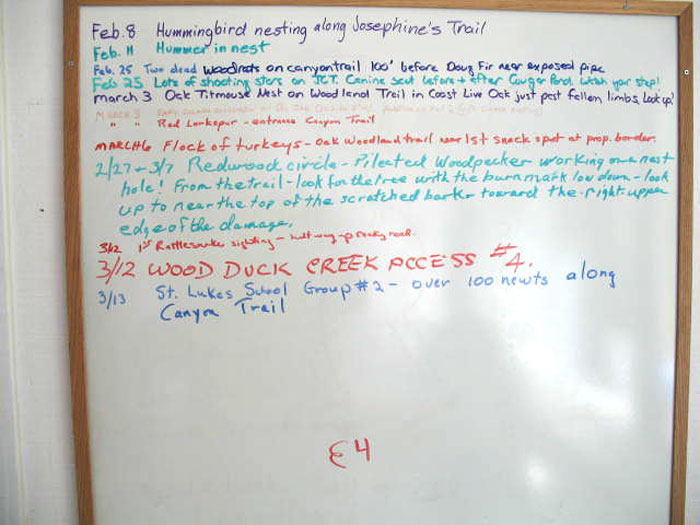 Feb. 8 Hummingbird nesting along Josephine's Trail
Feb. 11 Hummer in nest
Feb. 25 Two dead woodrats on canyon trail 100' before Doug Fir near exposed pipe
Feb 25 Lots of shooting stars on JCT. Canine scat before + after Cougar Pond. Watch your step!
March 3 Oak Titmouse Nest on Woodland Trail in Coast Live Oak just past fallen limbs. Look up!
March 3
" " Red Larkspur - entrance Canyon Trail
MARCH 6 Flock of turkeys - Oak Woodland trail near 1st snack spot at prop. border.
2/27 - 3/7 Redwood circle - Pileated Woodpecker working on a nest
hole! From the trail - look for the tree with the burn mark low down - look
up to near the top of the scratched bark - toward the right upper
edge of the damage.
3/12 1st Rattlesnake sighting - half way up rocky road.
3/12 WOOD DUCK CREEK ACCESS #4.
3/13 St. Lukes School Group #2 - over 100 newts along
Canyon Trail
4